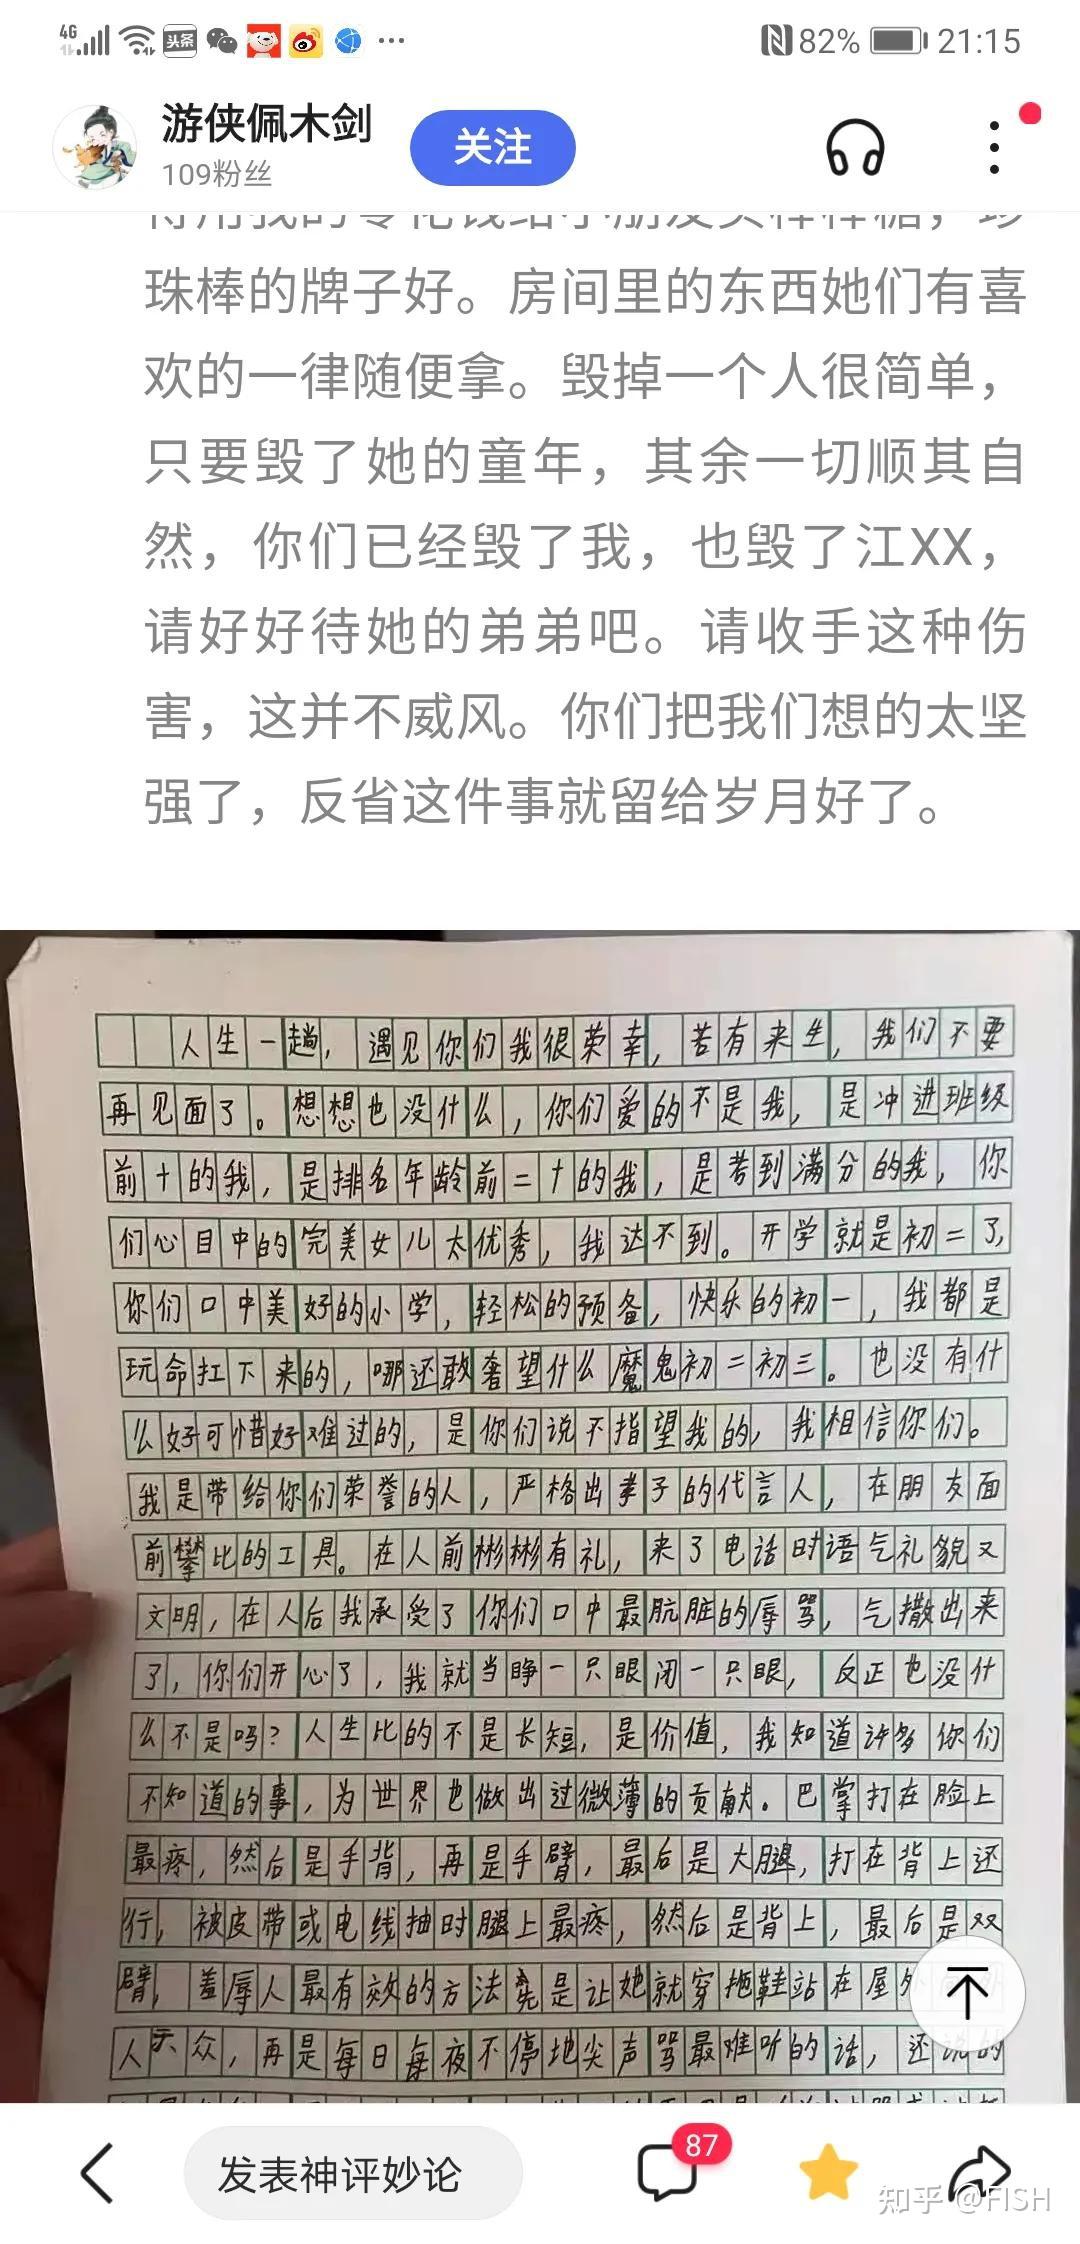 4G
头条
82%
21:15
游侠佩木剑
109粉丝
关注
得用我的零花钱给小朋友买棒棒糖，珍
珠棒的牌子好。房间里的东西她们有喜
欢的一律随便拿。毁掉一个人很简单，
只要毁了她的童年，其余一切顺其自
然，你们已经毁了我，也毁了江XX，
请好好待她的弟弟吧。请收手这种伤
害，这并不威风。你们把我们想的太坚
强了，反省这件事就留给岁月好了。
人生一趟，遇见你们我很荣幸，若有来生，我们不要
再见面了。想想也没什么，你们爱的不是我，是冲进班级
前十的我，是排名年龄前二十的我，是考到满分的我，你
们心目中的完美女儿太优秀，我达不到。开学就是初二了，
你们口中美好的小学，轻松的预备，快乐的初一，我都是
玩命扛下来的，哪还敢奢望什么魔鬼初二初三。也没有什
么好可惜好难过的，是你们说不指望我的，我相信你们。
我是带给你们荣誉的人，严格出孝子的代言人，在朋友面
前攀比的工具。在人前彬彬有礼，来了电话时语气礼貌又
文明，在人后我承受了你们口中最肮脏的辱骂，气撒出来
了，你们开心了，我就当睁一只眼闭一只眼，反正也没什
么不是吗？人生比的不是长短，是价值，我知道许多你们
不知道的事，为世界也做出过微薄的贡献。巴掌打在脸上
最疼，然后是手背，再是手臂，最后是大腿，打在背上还
行，被皮带或电线抽时腿上最疼，然后是背上，最后是双
臂，羞辱人最有效的方法竟是让她就穿拖鞋站在屋外
人示众，再是每日每夜不停地尖声骂最难听的话，还说的
发表神评妙论
87
知乎 @FISH